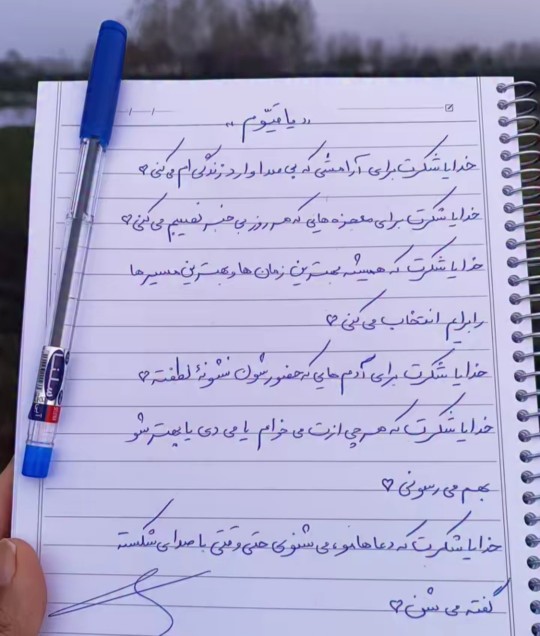 «یا قیّوم»
خدایا شکرت برای آرامشی که بی صدا وارد زندگی ام می کنی♡
خدایا شکرت برای معجزه هایی که هر روز بی خبر نصیبم می کنی♡
خدایا شکرت که همیشه بهترین زمان ها و بهترین مسیرها
رابرایم انتخاب می کنی♡
خدایا شکرت برای آدم هایی که حضورشون نشونهٔ لطفته♡
خدایا شکرت که هر چی ازت می خوام یا می دی یا بهترشو
بهم می رسونی♡
خدایا شکرت که دعاهامو، می شنوی حتی وقتی با صدای شکسته
گفته می شن♡